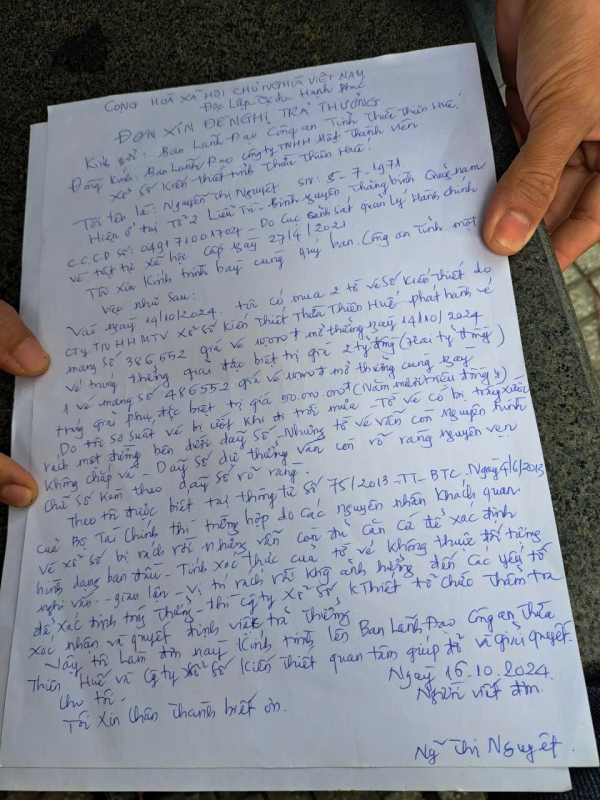 CỘNG HOÀ XÃ HỘI CHỦ NGHĨA VIỆT NAM
Độc Lập Tự do Hạnh Phúc
ĐƠN XIN ĐỀ NGHỊ TRẢ THƯỞNG
Kính gửi: Ban Lãnh Đạo Công an Tỉnh Thừa Thiên Huế.
Đồng Kính: Ban Lãnh Đạo Công ty TNHH Một Thành Viên
Xổ Số Kiến thiết tỉnh Thừa Thiên Huế.
Tôi tên là: Nguyễn Thị Nguyệt SN: 8-7-1971
Hiện ở tại Tổ 2 Liễu Trì - Bình Nguyên Thăng bình Quảng nam
C.C.C.D số: - Do Cục Cảnh Sát quản lý Hành chính
về trật tự xã hội Cấp ngày 27/4/2021.
Tôi Xin Kính trình bày cùng quý ban. Công an Tỉnh một
việc như sau:
Vào ngày 14/10/2024. tôi có mua 2 tờ vé Số Kiến Thiết do
CTy TNHH MTV Xổ Số Kiến Thiết Thừa Thiên Huế phát hành vé
mang Số 386552 giá vé 10.000đ mở thưởng ngày 14/10/2024
vé trúng thưởng giải đặc biệt trị giá 2 tỷ đồng (Hai tỷ đồng)
1 vé mang số 486552 giá vé 10.000đ mở thưởng cùng ngày
trúng giải phụ đặc biệt trị giá 50.000.000đ (Năm mươi triệu đồng)
Do tôi Sơ Suất vé bị ướt khi đi trời mưa - Tờ vé có bị trầy xước
rách một đường bên dưới dãy Số - Nhưng tờ vé vẫn còn nguyên hình
Không chắp vá - Dãy Số dự thưởng vẫn còn rõ ràng nguyên vẹn
Chữ Số Kèm theo dãy Số rõ ràng.
Theo tôi được biết tại thông tư số 75/2013 - TT - BTC. Ngày 4/6/2013
của Bộ Tài Chính thì trường hợp do các nguyên nhân khách quan
vé xổ số bị rách rời nhưng vẫn còn đủ căn cứ để xác định
hình dạng ban đầu - Tính xác thực của tờ vé không thuộc đối tượng
nghi vấn - gian lận - vị trí rách rời không ảnh hưởng đến các yếu tố
để xác định trúng thưởng - thì Công ty Xổ Số K Thiết tổ Chức Thẩm tra
xác nhận và quyết định việc trả thưởng
Nay tôi làm đơn này kính trình lên Ban Lãnh Đạo Công an Thừa
Thiên Huế và Công ty Xổ Số Kiến Thiết quan tâm giúp đỡ và giải quyết.
Cho tôi.
Tôi Xin Chân Thành biết ơn.
Ngày 16.10.2024.
Người viết đơn.
Ng Thị Nguyệt.